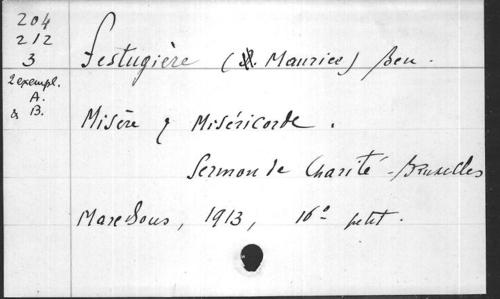 204
212
3
2 exempl.
A.
& B.
Festugière (D. Maurice) ben.
Misère & Miséricorde.
Sermon de Charité - Bruxelles
Maredsous, 1913, 16° petit.